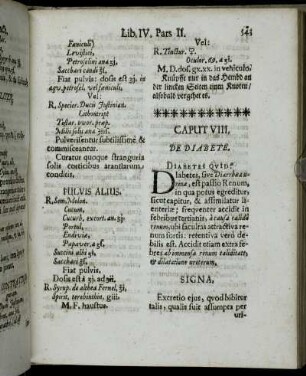 Lib. IV. Pars II. 545
Fœniculi
Levistici,
Petroselini ana ʒj.
Sacchari candi ʒi.
Fiat pulvis: dosis est ʒj. in
aqu. petrosel. vel fœniculi.
Vel:
R. Specier. Ducis Justinian.
Lithontript
Testar. ovor. præp.
Milii solis ana ʒis.
Pulverisentur subtilissimè &
commisceantur.
Curatur quoque stranguria
solis corticibus arantiorum
conditis.
PULVIS ALIUS.
R. Sem. Melon.
Cucum,
Cucurb. excort. an. ʒj.
Portul,
Endiviæ,
Papaver, a ʒſ.
Succini albi ʒſ.
Sacchari ʒj.
Fiat pulvis.
Dosis est à ʒj. ad
R. Syrup. de althea Fernel. ʒj.
Spirit. terebinthin. giiii.
M. F. haustus.
Vel:
R. Tartar.
Ocular. a ʒſ.
M. D. dos. gr. xx. in vehiculo.
Knüpffe nur in das Hembd an
der lincken Seiten einen Knoten/
alsbald vergehet es.
CAPUT VIII.
DE DIABETE.
DIABETES quin-
Diabetes, sive Diarrhœa u-
rina, est passio Renum,
in qua potus egreditur,
sicut capitur, & assimilatur li-
enteriæ; frequenter accidit in
febribus tertianis, à causa calida
renum, ubi facultas attractiva re-
num fortis: retentiva verò de-
bilis est. Accidit etiam extra fe-
bres ab immensa renum caliditate,
& dilatatione ureterum.
SIGNA.
Excretio ejus, quod bibitur
talis, qualis fuit assumpta per
uri-